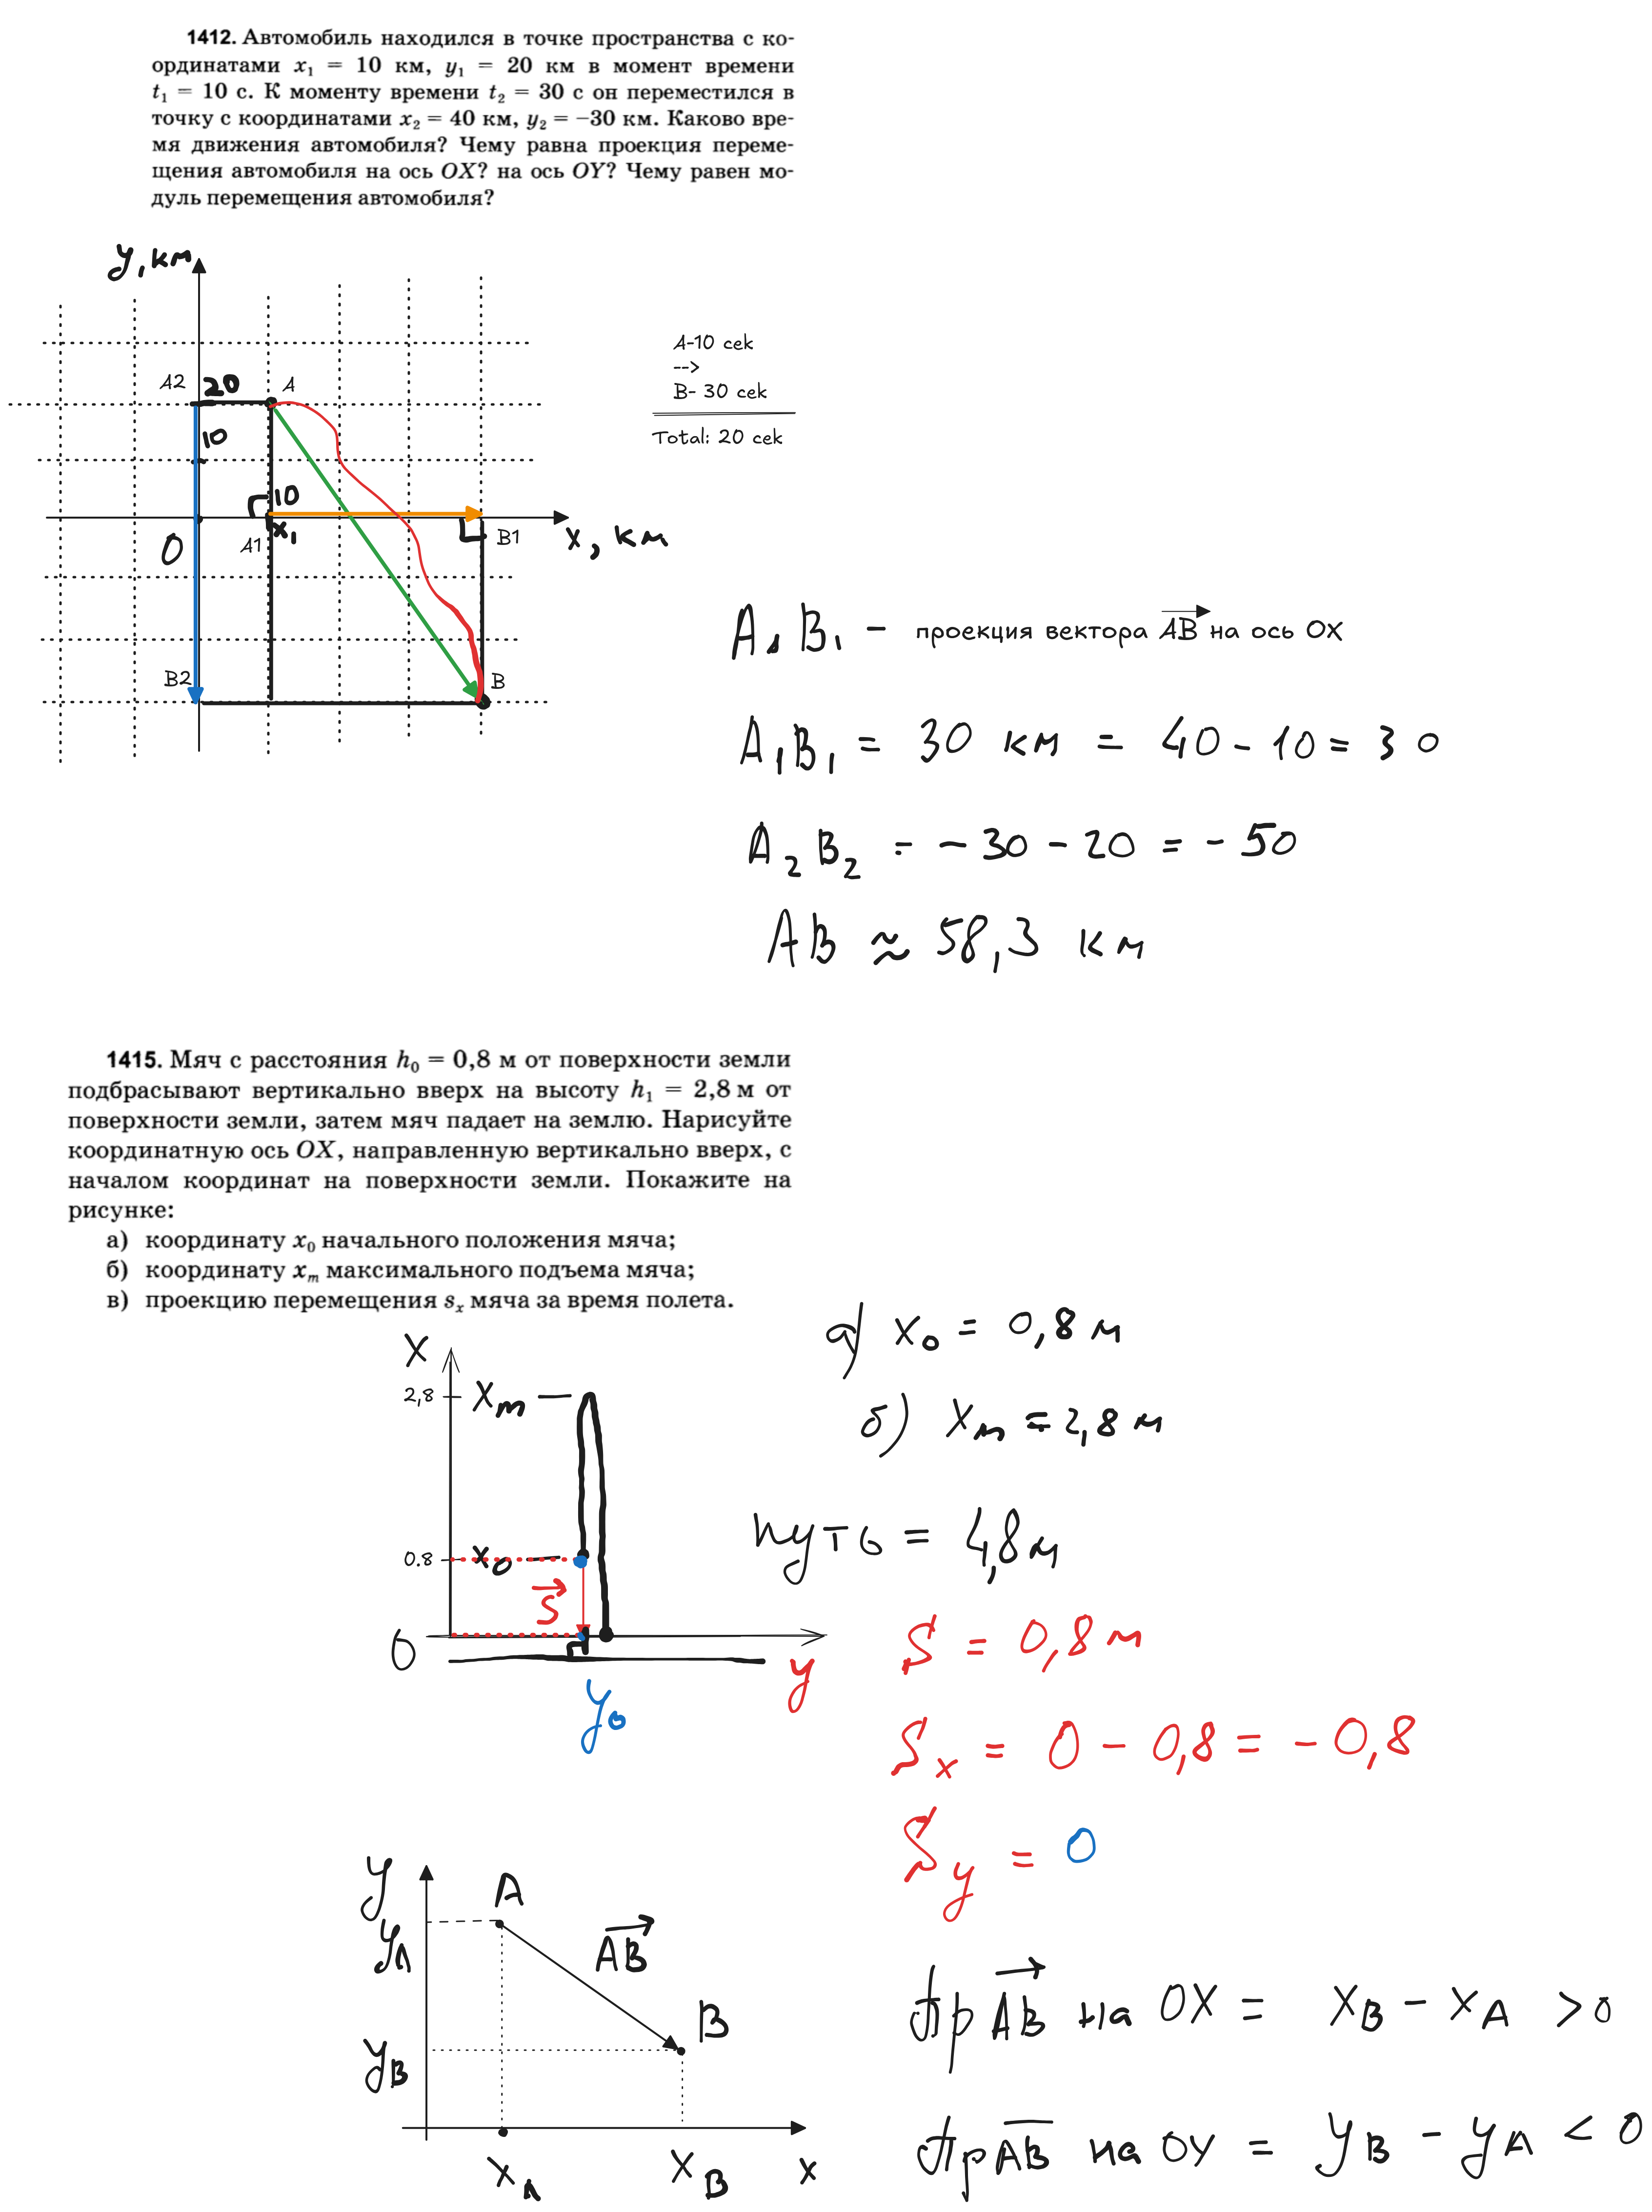 1412. Автомобиль находился в точке пространства с ко-
ординатами x₁ = 10 км, y₁ = 20 км в момент времени
t₁ = 10 с. К моменту времени t₂ = 30 с он переместился в
точку с координатами x₂ = 40 км, y₂ = −30 км. Каково вре-
мя движения автомобиля? Чему равна проекция переме-
щения автомобиля на ось OX? на ось OY? Чему равен мо-
дуль перемещения автомобиля?
y, км
A2 20 A
10
10
O A1 x₁ B1 x, км
B2 B
A-10 cek
-->
B- 30 cek
Total: 20 cek
A₁B₁ - проекция вектора AB на ось OX
A₁B₁ = 30 км = 40 - 10 = 30
A₂B₂ = - 30 - 20 = - 50
AB ≈ 58,3 км
1415. Мяч с расстояния h₀ = 0,8 м от поверхности земли
подбрасывают вертикально вверх на высоту h₁ = 2,8 м от
поверхности земли, затем мяч падает на землю. Нарисуйте
координатную ось OX, направленную вертикально вверх, с
началом координат на поверхности земли. Покажите на
рисунке:
а) координату x₀ начального положения мяча;
б) координату xₘ максимального подъема мяча;
в) проекцию перемещения sₓ мяча за время полета.
X
2,8 Xm
0.8 x₀
S
O
y
y₀
а) x₀ = 0,8 м
б) Xm = 2,8 м
путь = 4,8 м
S = 0,8 м
Sx = 0 - 0,8 = - 0,8
Sy = 0
y A
yA AB
B
yB
xA xB x
Пр AB на OX = xB - xA > 0
Пр AB на OY = yB - yA < 0